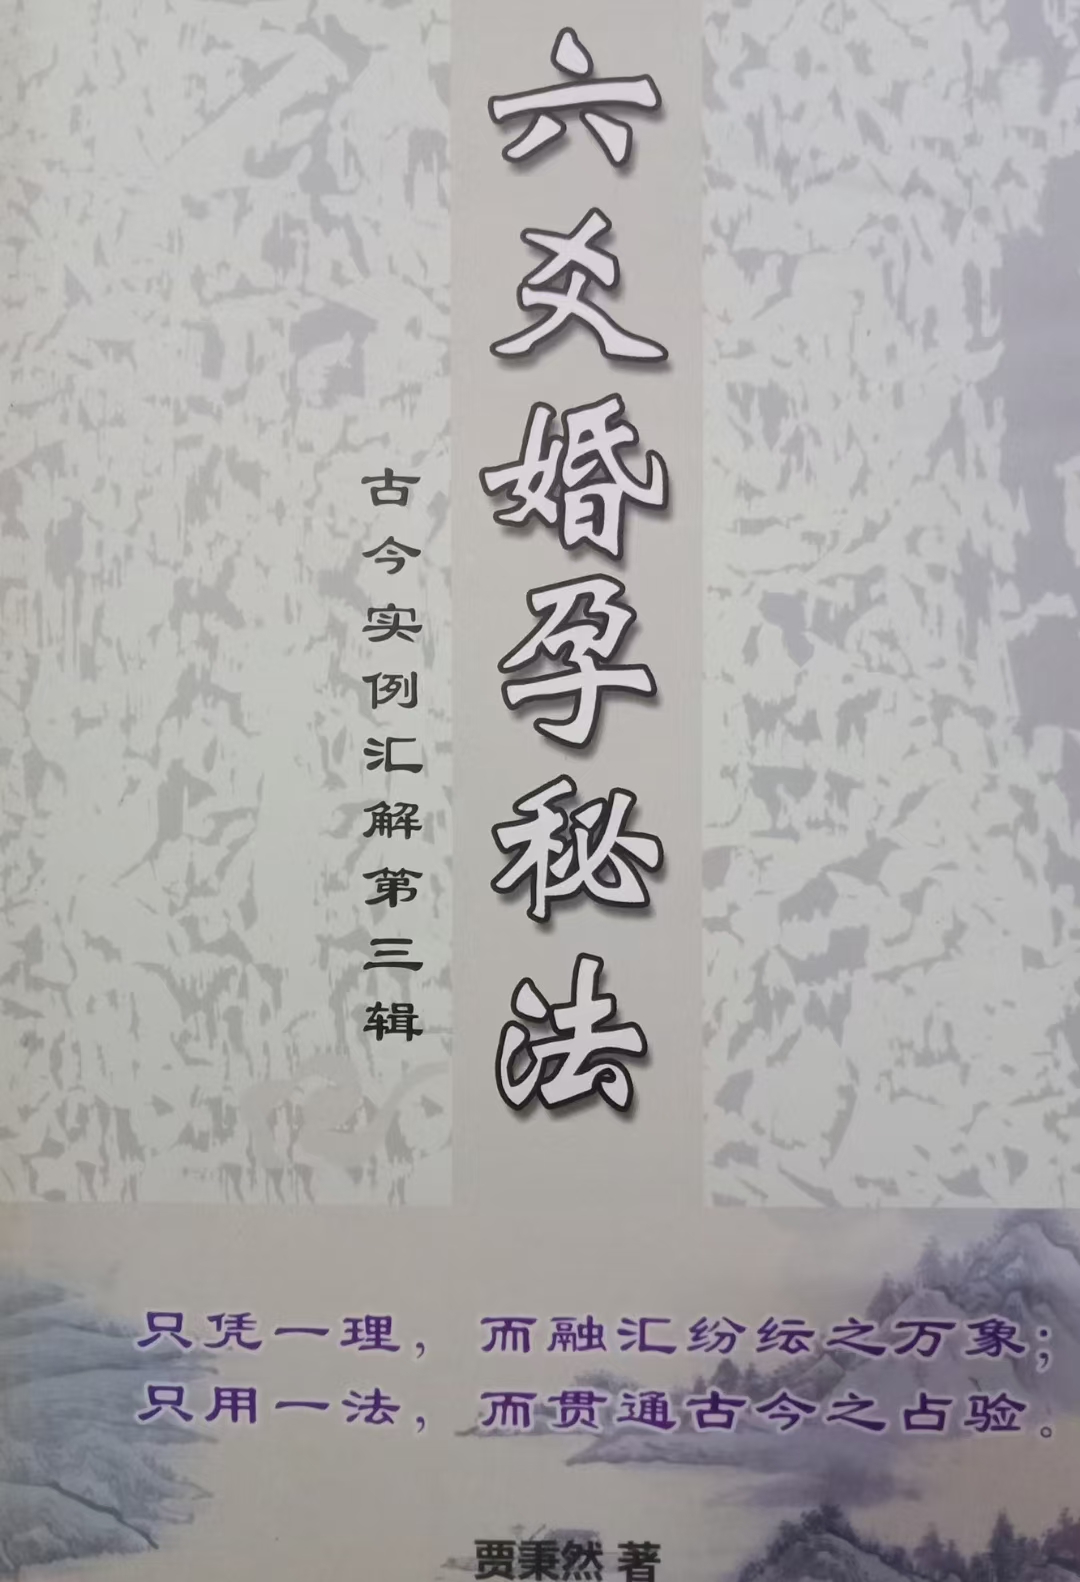 六爻婚孕秘法
古今实例汇解第三辑
只凭一理，而融汇纷纭之万象；
只用一法，而贯通古今之占验。
贾秉然 著